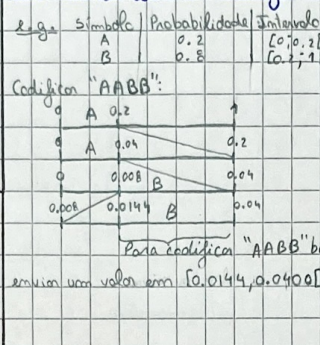 e.g. Símbolo | Probabilidade | Intervalo
A | 0.2 | [0;0.2[
B | 0.8 | [0.2;1
Codificar "AABB":
0 A 0.2 1
0 A 0.04 0.2
0 0.008 B 0.04
0.008 0.0144 B 0.04
Para codificar "AABB" b
enviar um valor em [0.0144,0.0400[